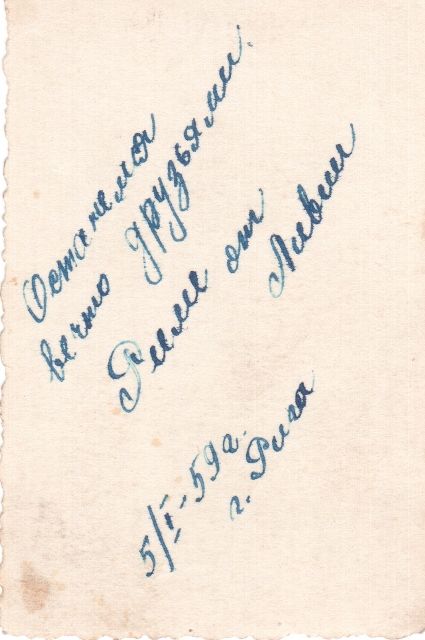 Останемся
вечно друзьями.
Римме от
Ливии
5/I-59г.
г. Рига